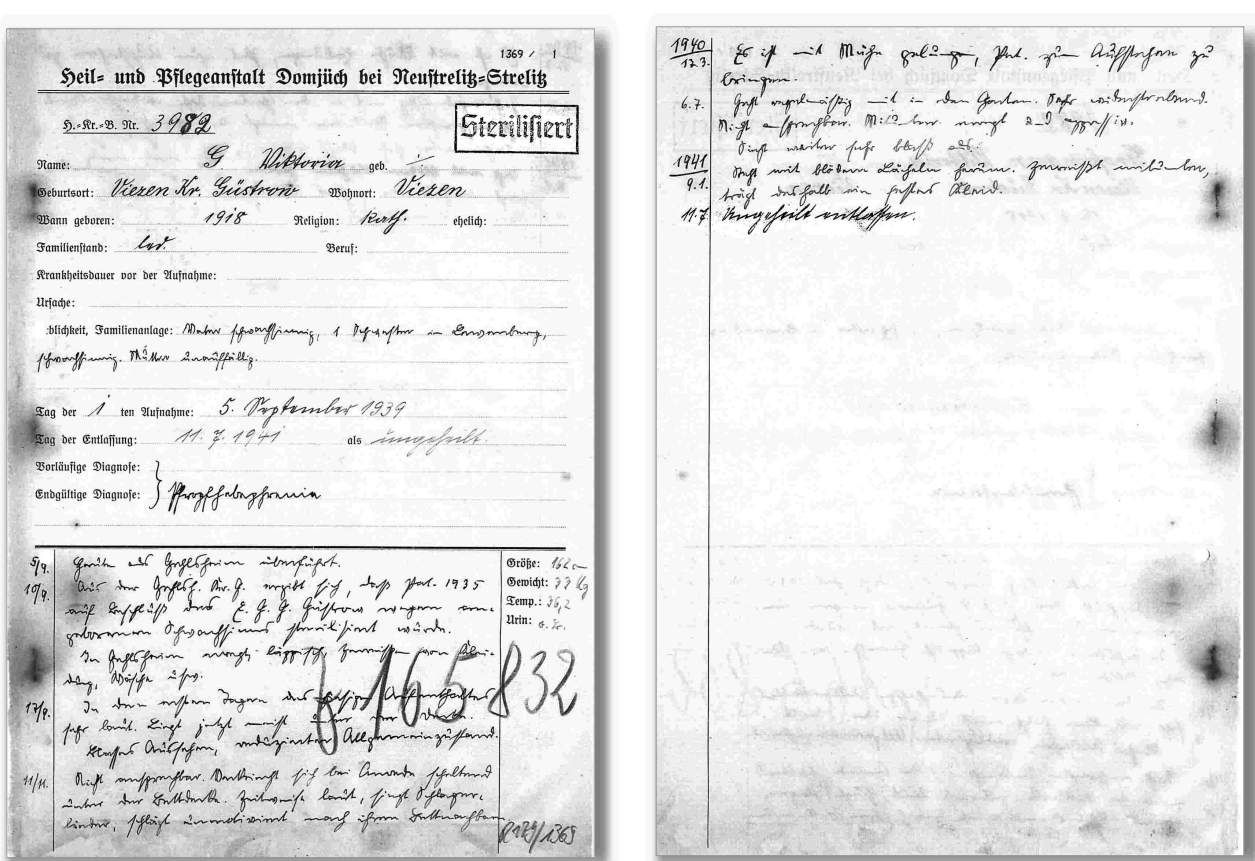 1369 / 1
Heil- und Pflegeanstalt Domjüch bei Neustrelitz-Strelitz
H.-Kr.-B. Nr. 3982
Sterilisiert
Name: G Viktoria geb.
Geburtsort: Viezen Kr. Güstrow Wohnort: Viezen
Wann geboren: 1918 Religion: kath. ehelich:
Familienstand: led. Beruf:
Krankheitsdauer vor der Aufnahme:
Ursache:
blichkeit, Familienanlage: Vater schwachsinnig, 1 Schwester in Lewenberg,
schwachsinnig. Mutter unauffällig.
Tag der 1 ten Aufnahme: 5. September 1939
Tag der Entlassung: 11. 7. 1941 als ungeheilt.
Vorläufige Diagnose:
Endgültige Diagnose: Pfropfhebephrenie
5/9. Heute aus Gehlsheim überführt.
10/9. Aus der Gehlsh. Kr. G. ergibt sich, daß Pat. 1935
auf Beschluß des E. G. G. Güstrow wegen an-
geborenen Schwachsinns sterilisiert wurde.
In Gehlsheim erregt, läppisch, Zerreissen von Klei-
dung, Wäsche usw.
17/9. In den ersten Tagen des hiesigen Aufenthaltes
sehr laut. Liegt jetzt meist unter der Decke.
Blasses Aussehen, reduzierter Allgemeinzustand.
11/11. Nicht ansprechbar. Verkriecht sich bei Anrede scheltend
unter der Bettdecke. Zeitweise laut, singt Schlager-
lieder, schlägt unmotiviert nach ihren Bettnachbarn
Größe: 162 cm
Gewicht: Kg
Temp.: 36,2
Urin: o. B.
165832
R 179/1369
1940
12.3. Es ist mit Mühe gelungen, Pat. zum Aufstehen zu
bringen.
6.7. Geht regelmäßig mit in den Garten. Sehr widerstrebend.
Nicht ansprechbar. Mitunter erregt und aggressiv.
Sieht weiter sehr blaß aus.
1941
9.1. Steht mit blödem Lächeln herum. Zerreißt mitunter,
trägt deshalb ein festes Kleid.
11.7. Ungeheilt entlassen.